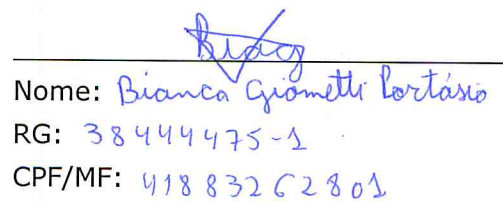 Nome: Bianca Giometti Portásio
RG: 38444475-1
CPF/MF: 41883262801